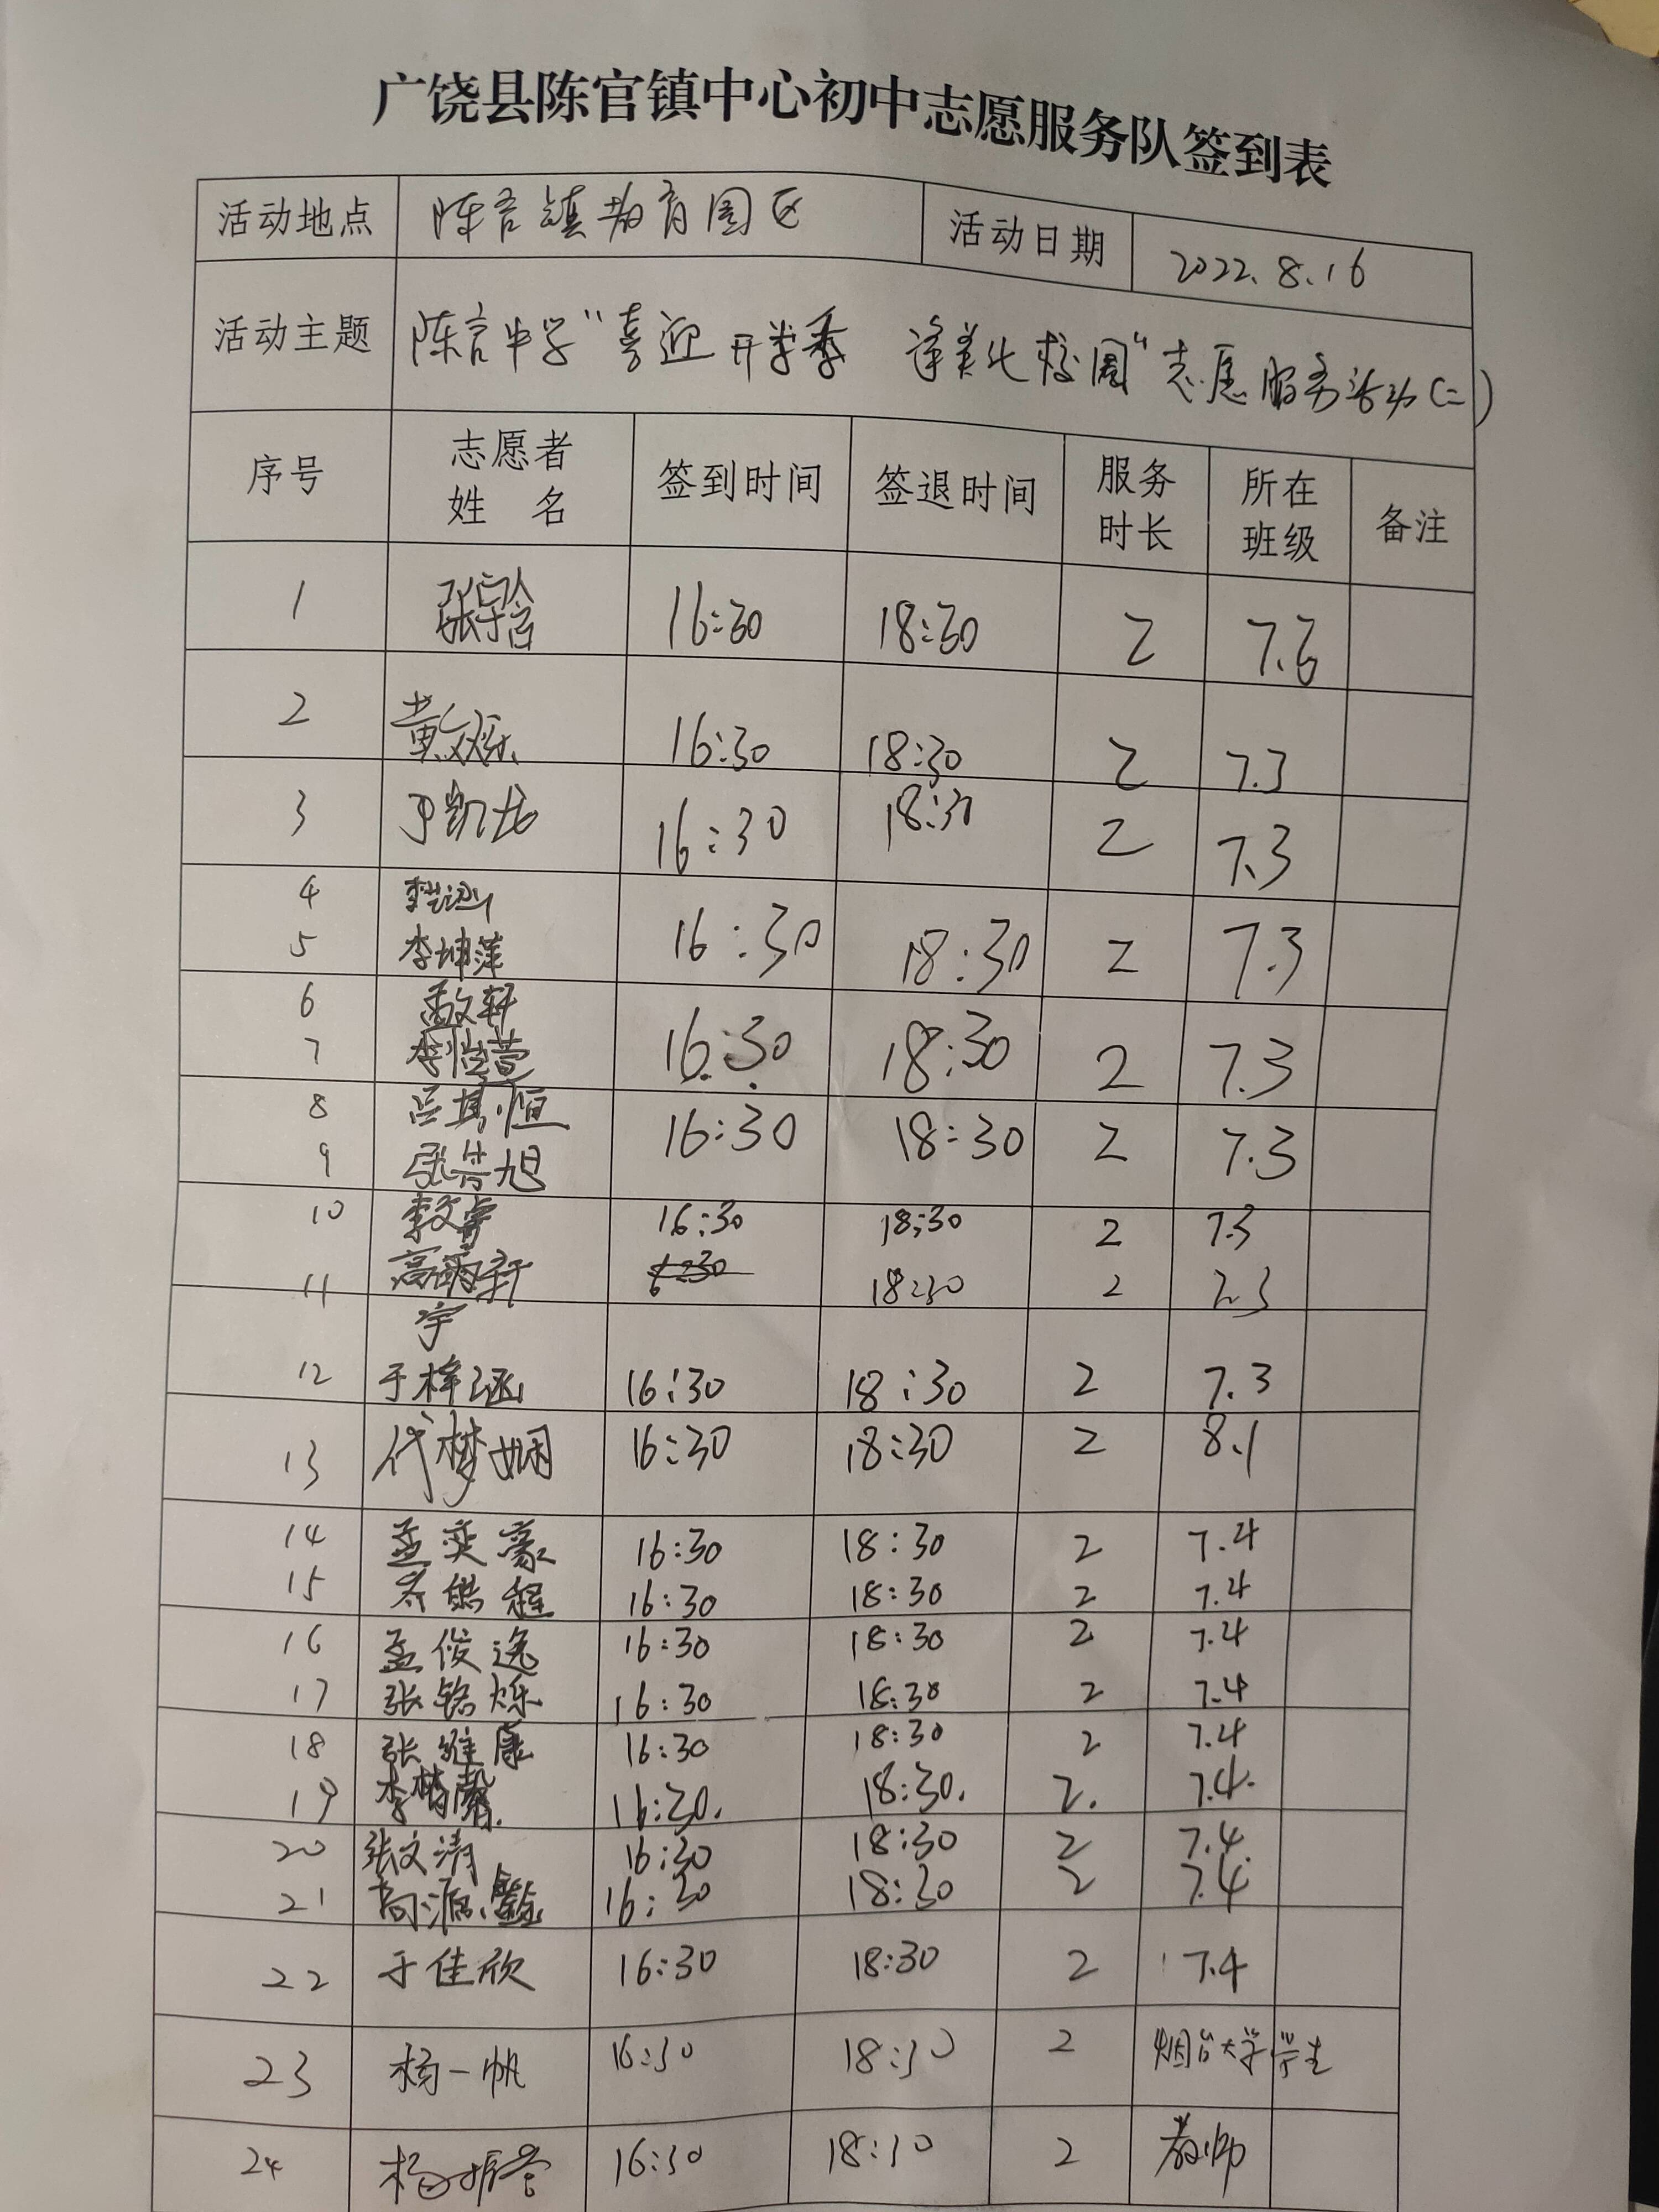 广饶县陈官镇中心初中志愿服务队签到表
活动地点 陈官镇教育园区 活动日期 2022.8.16
活动主题 陈官中学“喜迎开学季 美化校园”志愿服务活动(二)
序号 志愿者姓 名 签到时间 签退时间 服务时长 所在班级 备注
1 张宇含 16:30 18:30 2 7.6
2 黄 16:30 18:30 2 7.3
3 凯龙 16:30 18:30 2 7.3
4 李
5 李坤萍 16:30 18:30 2 7.3
6 孟文轩
7 李恺萱 16:30 18:30 2 7.3
8 吕其恒
9 张浩旭 16:30 18:30 2 7.3
10 李文睿 16:30 18:30 2 7.3
11 高 轩宇 6:30 18:30 2 7.3
12 于梓涵 16:30 18:30 2 7.3
13 代梦娴 16:30 18:30 2 8.1
14 孟奕豪 16:30 18:30 2 7.4
15 程 16:30 18:30 2 7.4
16 孟俊逸 16:30 18:30 2 7.4
17 张铭烁 16:30 18:30 2 7.4
18 张维康 16:30 18:30 2 7.4
19 李梦馨 16:30. 18:30. 2. 7.4.
20 张文清 16:30 18:30 2 7.4
21 高源 16:30 18:30 2 7.4
22 于佳欣 16:30 18:30 2 7.4
23 杨一帆 16:30 18:30 2 烟台大学学生
24 杨振誉 16:30 18:30 2 教师